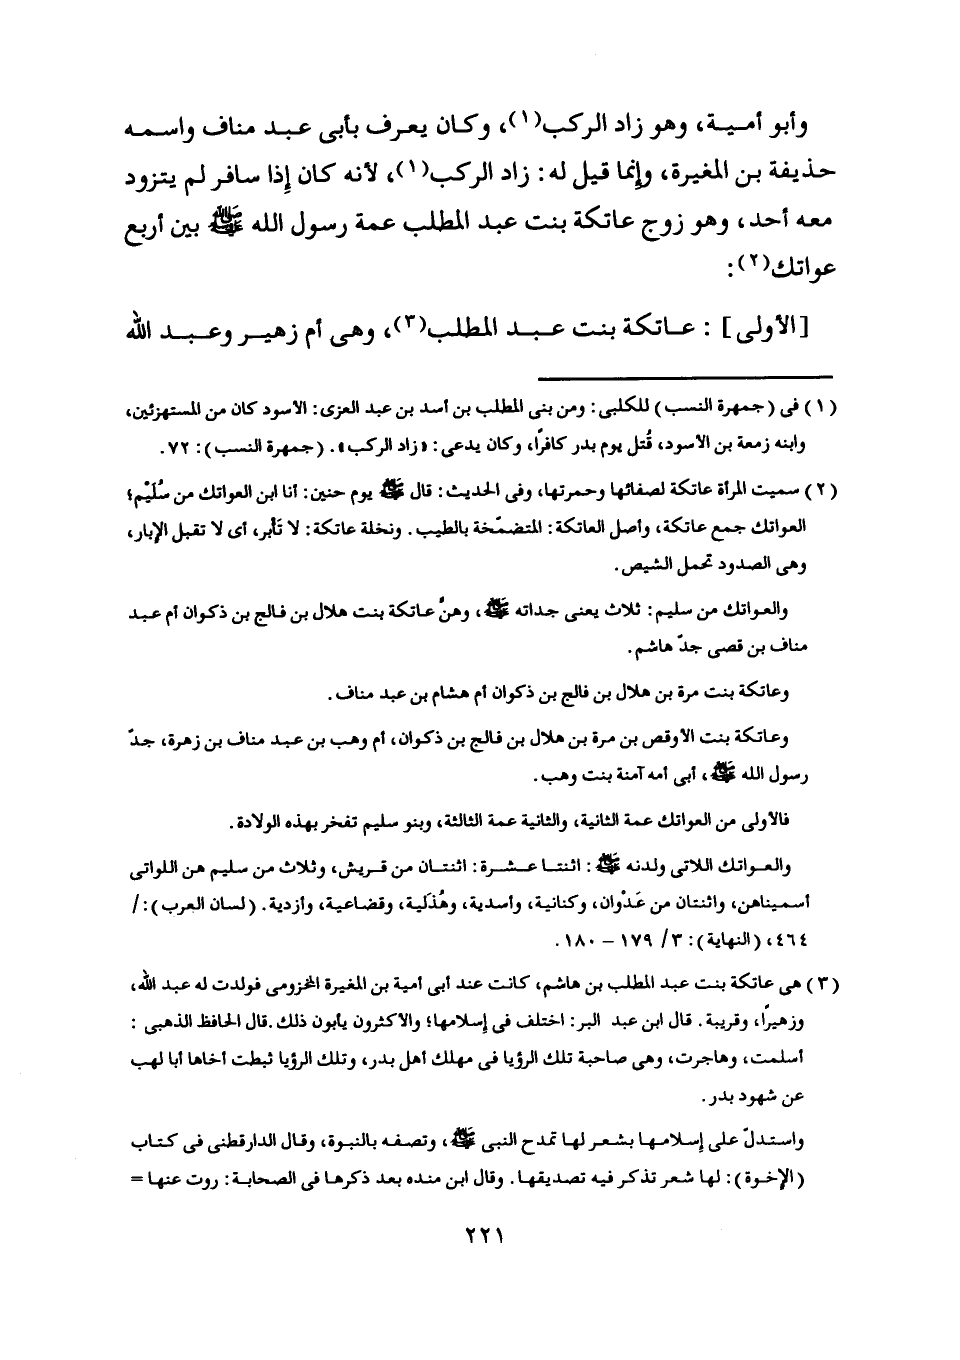 وأبو أمـيـة، وهو زاد الركب(١)، وكان يعرف بأبى عبـد مناف واسمـه
حذيفة بن المغيرة، وإنما قيل له: زاد الركب(١)، لأنه كان إذا سافر لم يتزود
معه أحد، وهو زوج عاتكة بنت عبد المطلب عمة رسول الله ﷺ بين أربع
عواتك(٢):
[الأولى] : عـاتكة بنت عـبـد المطلب(٣)، وهى أم زهيـر وعـبـد الله
(١) فى (جمهرة النسب) للكلبى: ومن بنى المطلب بن أسد بن عبد العزى: الأسود كان من المستهزئين،
وابنه زمعة بن الأسود، قُتل يوم بدر كافرًا، وكان يدعى: «زاد الركب». (جمهرة النسب): ٧٢.
(٢) سميت المرأة عاتكة لصفائها وحمرتها، وفى الحديث: قال ﷺ يوم حنين: أنا ابن العواتك من سُلَيْم؛
العواتك جمع عاتكة، وأصل العاتكة: المتضمّخة بالطيب. ونخلة عاتكة: لا تَأبر، أى لا تقبل الإبار،
وهى الصدود تحمل الشيص.
والعواتك من سليم: ثلاث يعنى جداته ﷺ، وهنَّ عاتكة بنت هلال بن فالج بن ذكوان أم عبـد
مناف بن قصى جدّ هاشم.
وعاتكة بنت مرة بن هلال بن فالج بن ذكوان أم هشام بن عبد مناف.
وعـاتكة بنت الأوقص بن مرة بن هلال بن فالج بن ذكوان، أم وهب بن عبـد مناف بن زهرة، جـدّ
رسول الله ﷺ، أبى أمه آمنة بنت وهب.
فالأولى من العواتك عمة الثانية، والثانية عمة الثالثة، وبنو سليم تفخر بهذه الولادة.
والعـواتك اللاتى ولدنه ﷺ: اثنتـا عـشـرة: اثنتـان من قـريش، وثلاث من سليم هن اللواتى
أسميناهن، واثنتان من عَدْوان، وكنانية، وأسدية، وهُذَلية، وقضاعية، وأزدية. (لسان العرب):/
٤٦٤، (النهاية): ٣/ ١٧٩ – ١٨٠.
(٣) هى عاتكة بنت عبد المطلب بن هاشم، كانت عند أبى أمية بن المغيرة المخزومى فولدت له عبد الله،
وزهيرًا، وقريبة. قال ابن عبد البر: اختلف فى إسلامها؛ والأكثرون يأبون ذلك.قال الحافظ الذهبى :
أسلمت، وهاجرت، وهى صاحبة تلك الرؤيا فى مهلك أهل بدر، وتلك الرؤيا ثبطت أخاها أبا لهب
عن شهود بدر.
واستدلّ على إسلامـها بشعر لهـا تمدح النبى ﷺ، وتصفه بالنبوة، وقال الدارقطنى فى كتـاب
(الإخـوة): لهـا شعر تذكـر فيه تصديقهـا. وقال ابن منده بعد ذكرها فى الصحابـة: روت عنهـا =
٢٢١